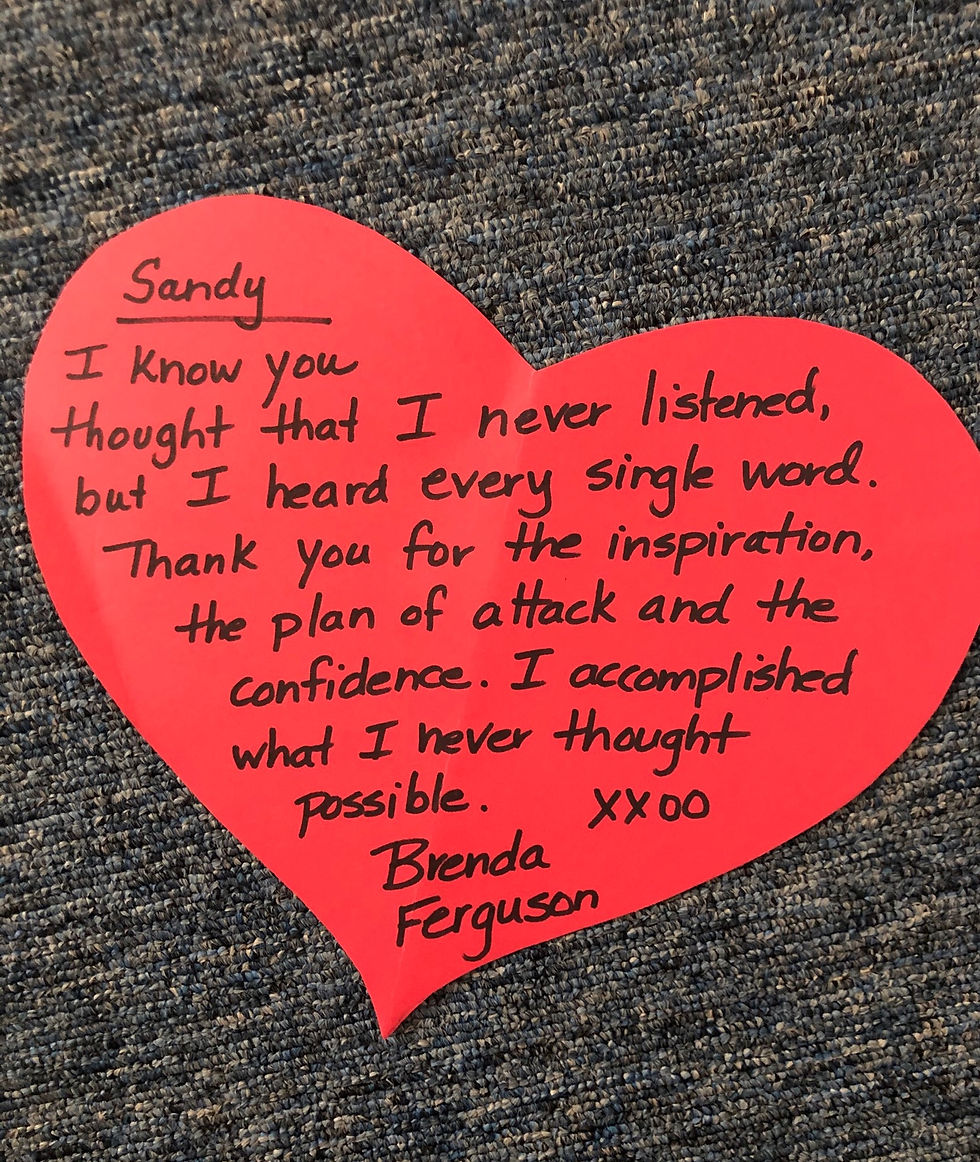 Sandy
I know you
thought that I never listened,
but I heard every single word.
Thank you for the inspiration,
the plan of attack and the
confidence. I accomplished
what I never thought
possible. xxoo
Brenda
Ferguson